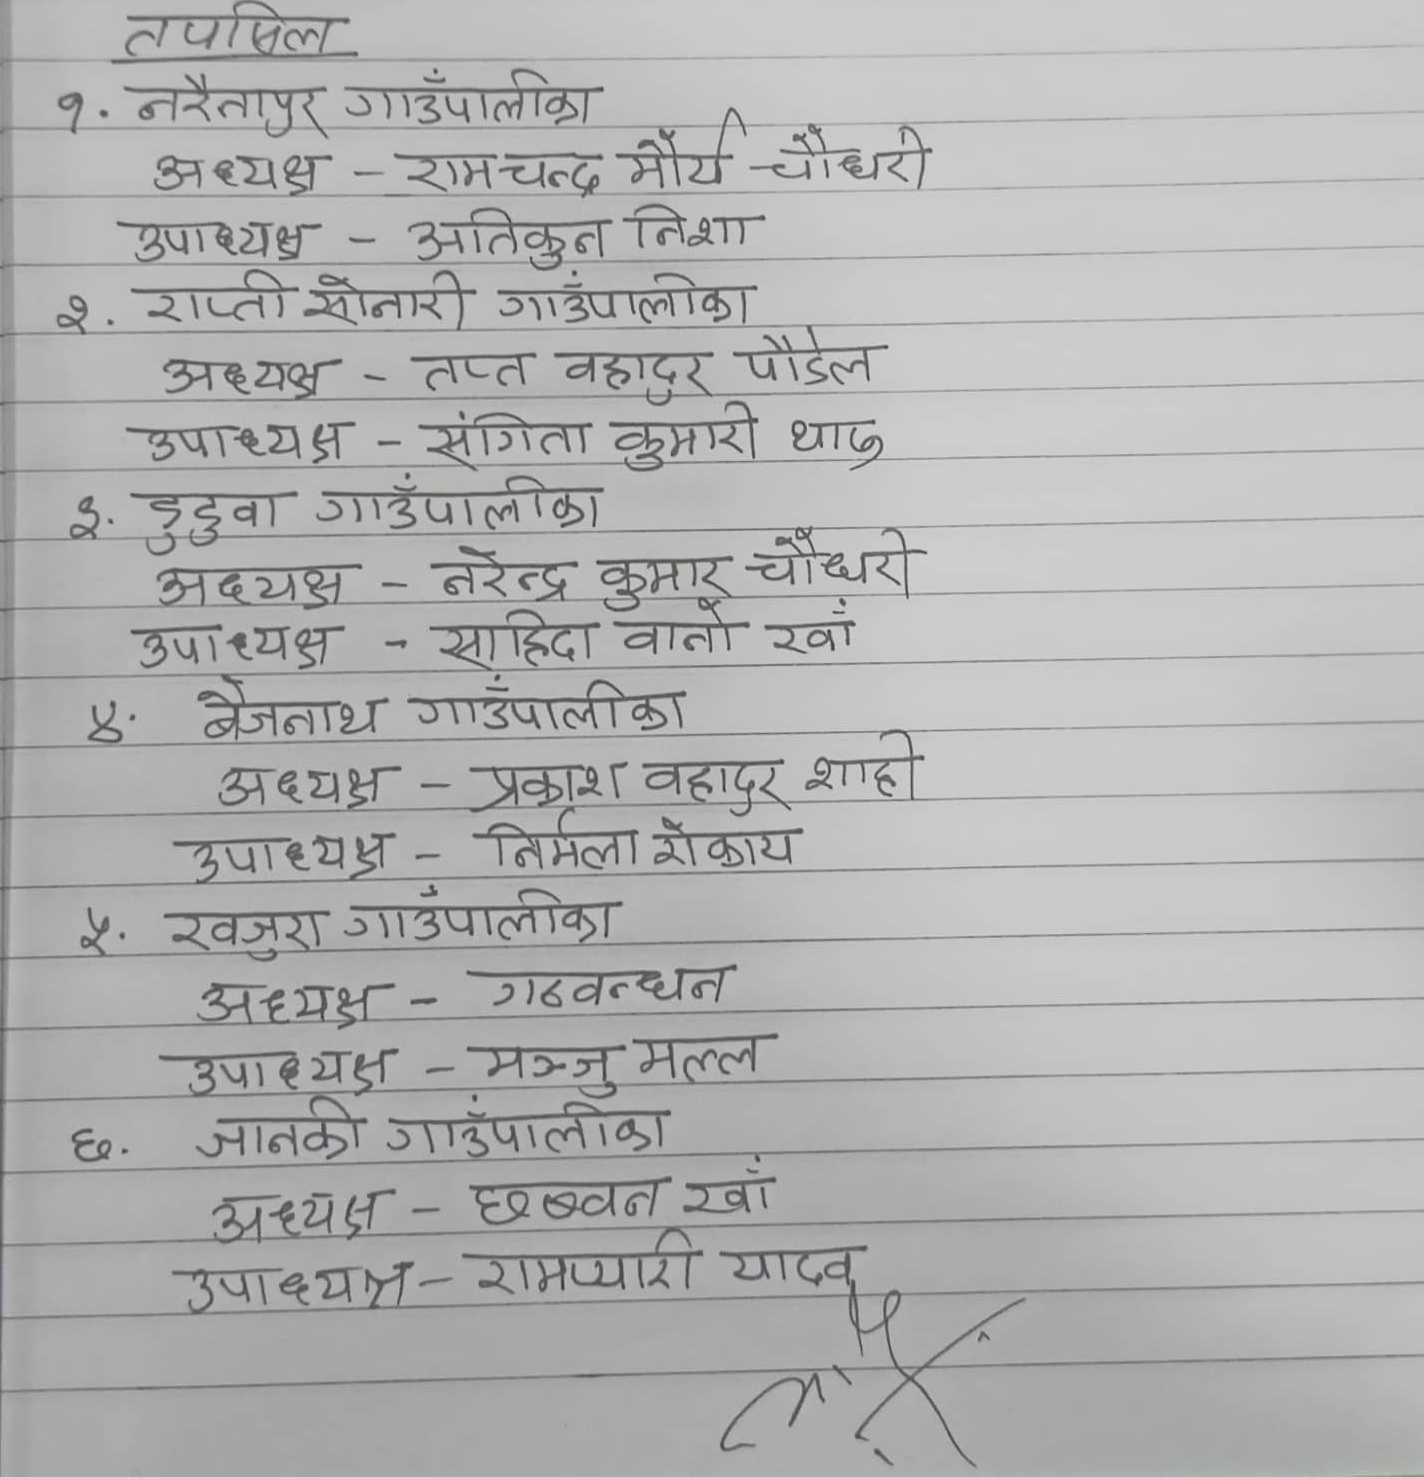 तपसिल
१. नरैनापुर गाउँपालीका
अध्यक्ष - रामचन्द्र मौर्य चौधरी
उपाध्यक्ष - अतिकुन निशा
२. राप्ती सोनारी गाउँपालीका
अध्यक्ष - तप्त वहादुर पौडेल
उपाध्यक्ष - संगिता कुमारी थारु
३. डुडुवा गाउँपालीका
अध्यक्ष - नरेन्द्र कुमार चौधरी
उपाध्यक्ष - साहिदा वानो खाँ
४. बैजनाथ गाउँपालीका
अध्यक्ष - प्रकाश वहादुर शाही
उपाध्यक्ष - निर्मला रोकाय
५. खजुरा गाउँपालीका
अध्यक्ष - गठवन्धन
उपाध्यक्ष - मञ्जु मल्ल
६. जानकी गाउँपालीका
अध्यक्ष - छब्वन खाँ
उपाध्यक्ष - रामप्यारी यादव